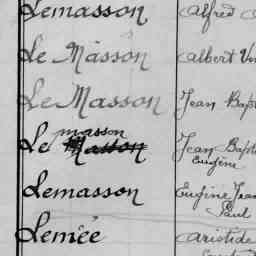 Lemasson Alfred
Le Masson Albert
Le Masson Jean
Le masson Masson Jean
Eugène
Lemasson Eugène Jean
Paul
Lemée Aristide